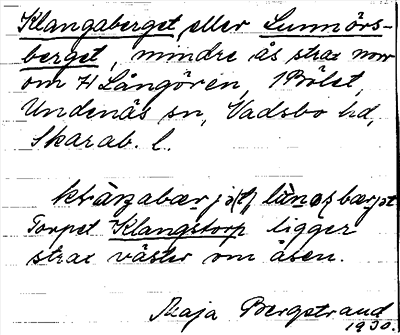 Klangaberget, eller Lunnörs-
berget, mindre ås strax norr
om H Långören, 1 Bölet,
Undenäs sn, Vadsbo hd,
Skarab. l.
Torpet Klangstorp ligger
strax väster om åsen.
Maja Bergstrand
1930.